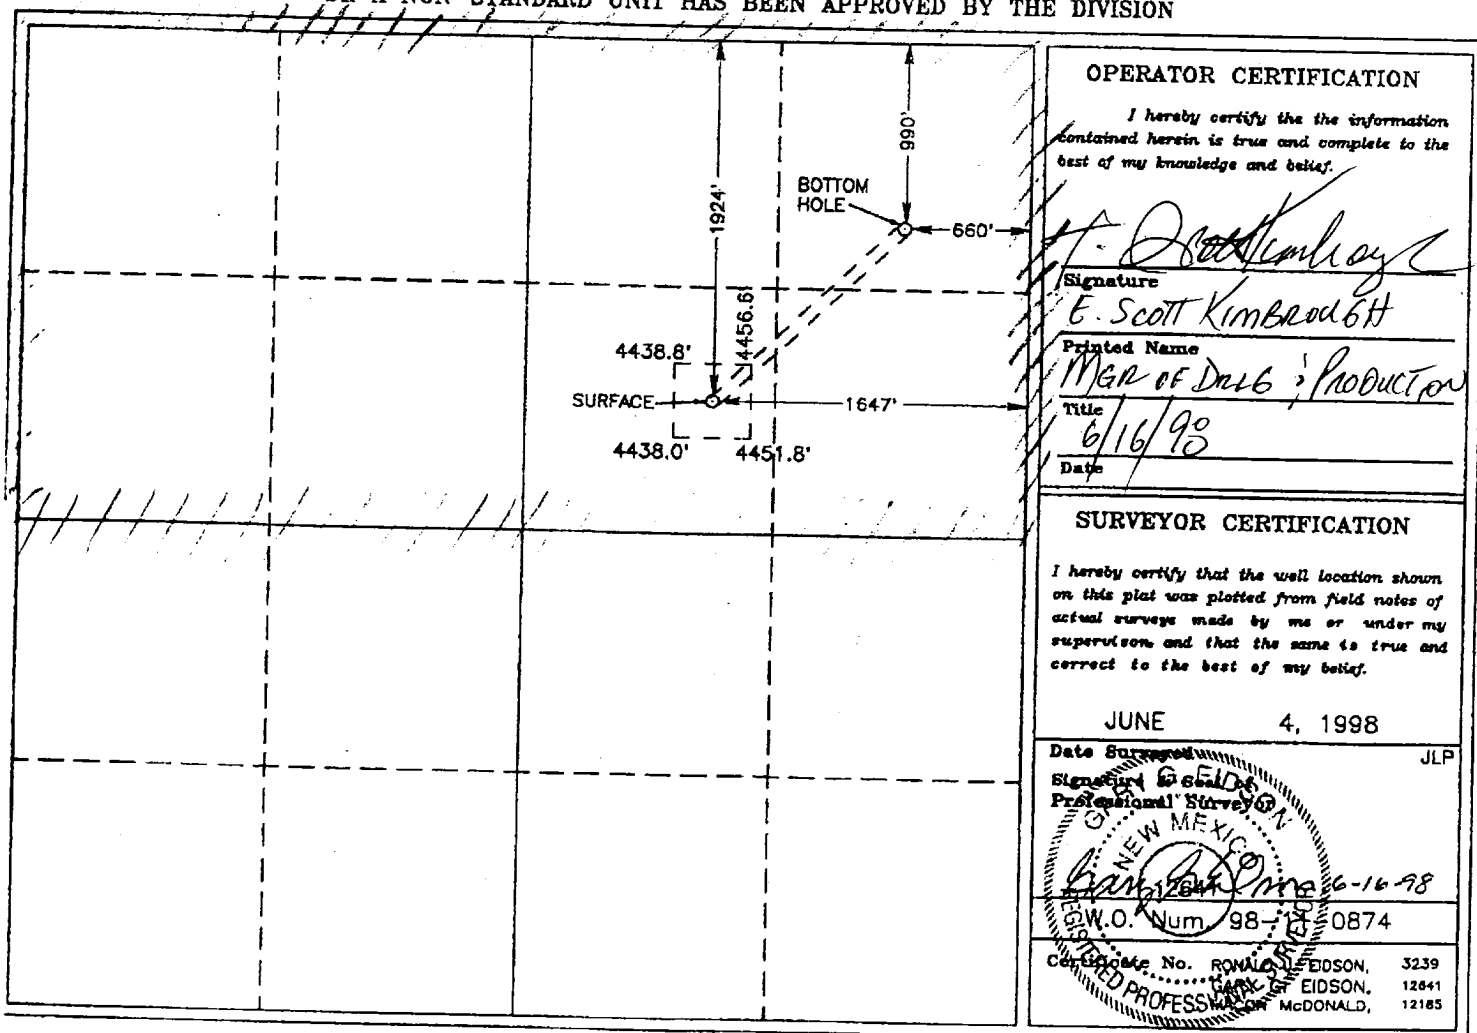 NON STANDARD UNIT HAS BEEN APPROVED BY THE DIVISION
1924'
990'
BOTTOM
HOLE
660'
4438.8'
4456.6'
SURFACE
1647'
4438.0'
4451.8'
OPERATOR CERTIFICATION
I hereby certify the the information
contained herein is true and complete to the
best of my knowledge and belief.
Signature
E. SCOTT KIMBROUGH
Printed Name
MGR OF DRLG & PRODUCTION
Title
6/16/98
Date
SURVEYOR CERTIFICATION
I hereby certify that the well location shown
on this plat was plotted from field notes of
actual surveys made by me or under my
supervison, and that the same is true and
correct to the best of my belief.
JUNE 4, 1998
Date Surveyed JLP
Signature & Seal of
Professional Surveyor
GARY G. EIDSON
NEW MEXICO
12641
REGISTERED PROFESSIONAL SURVEYOR
6-16-98
W.O. Num. 98-11-0874
Certificate No. RONALD J. EIDSON, 3239
GARY G. EIDSON, 12641
MACON McDONALD, 12185